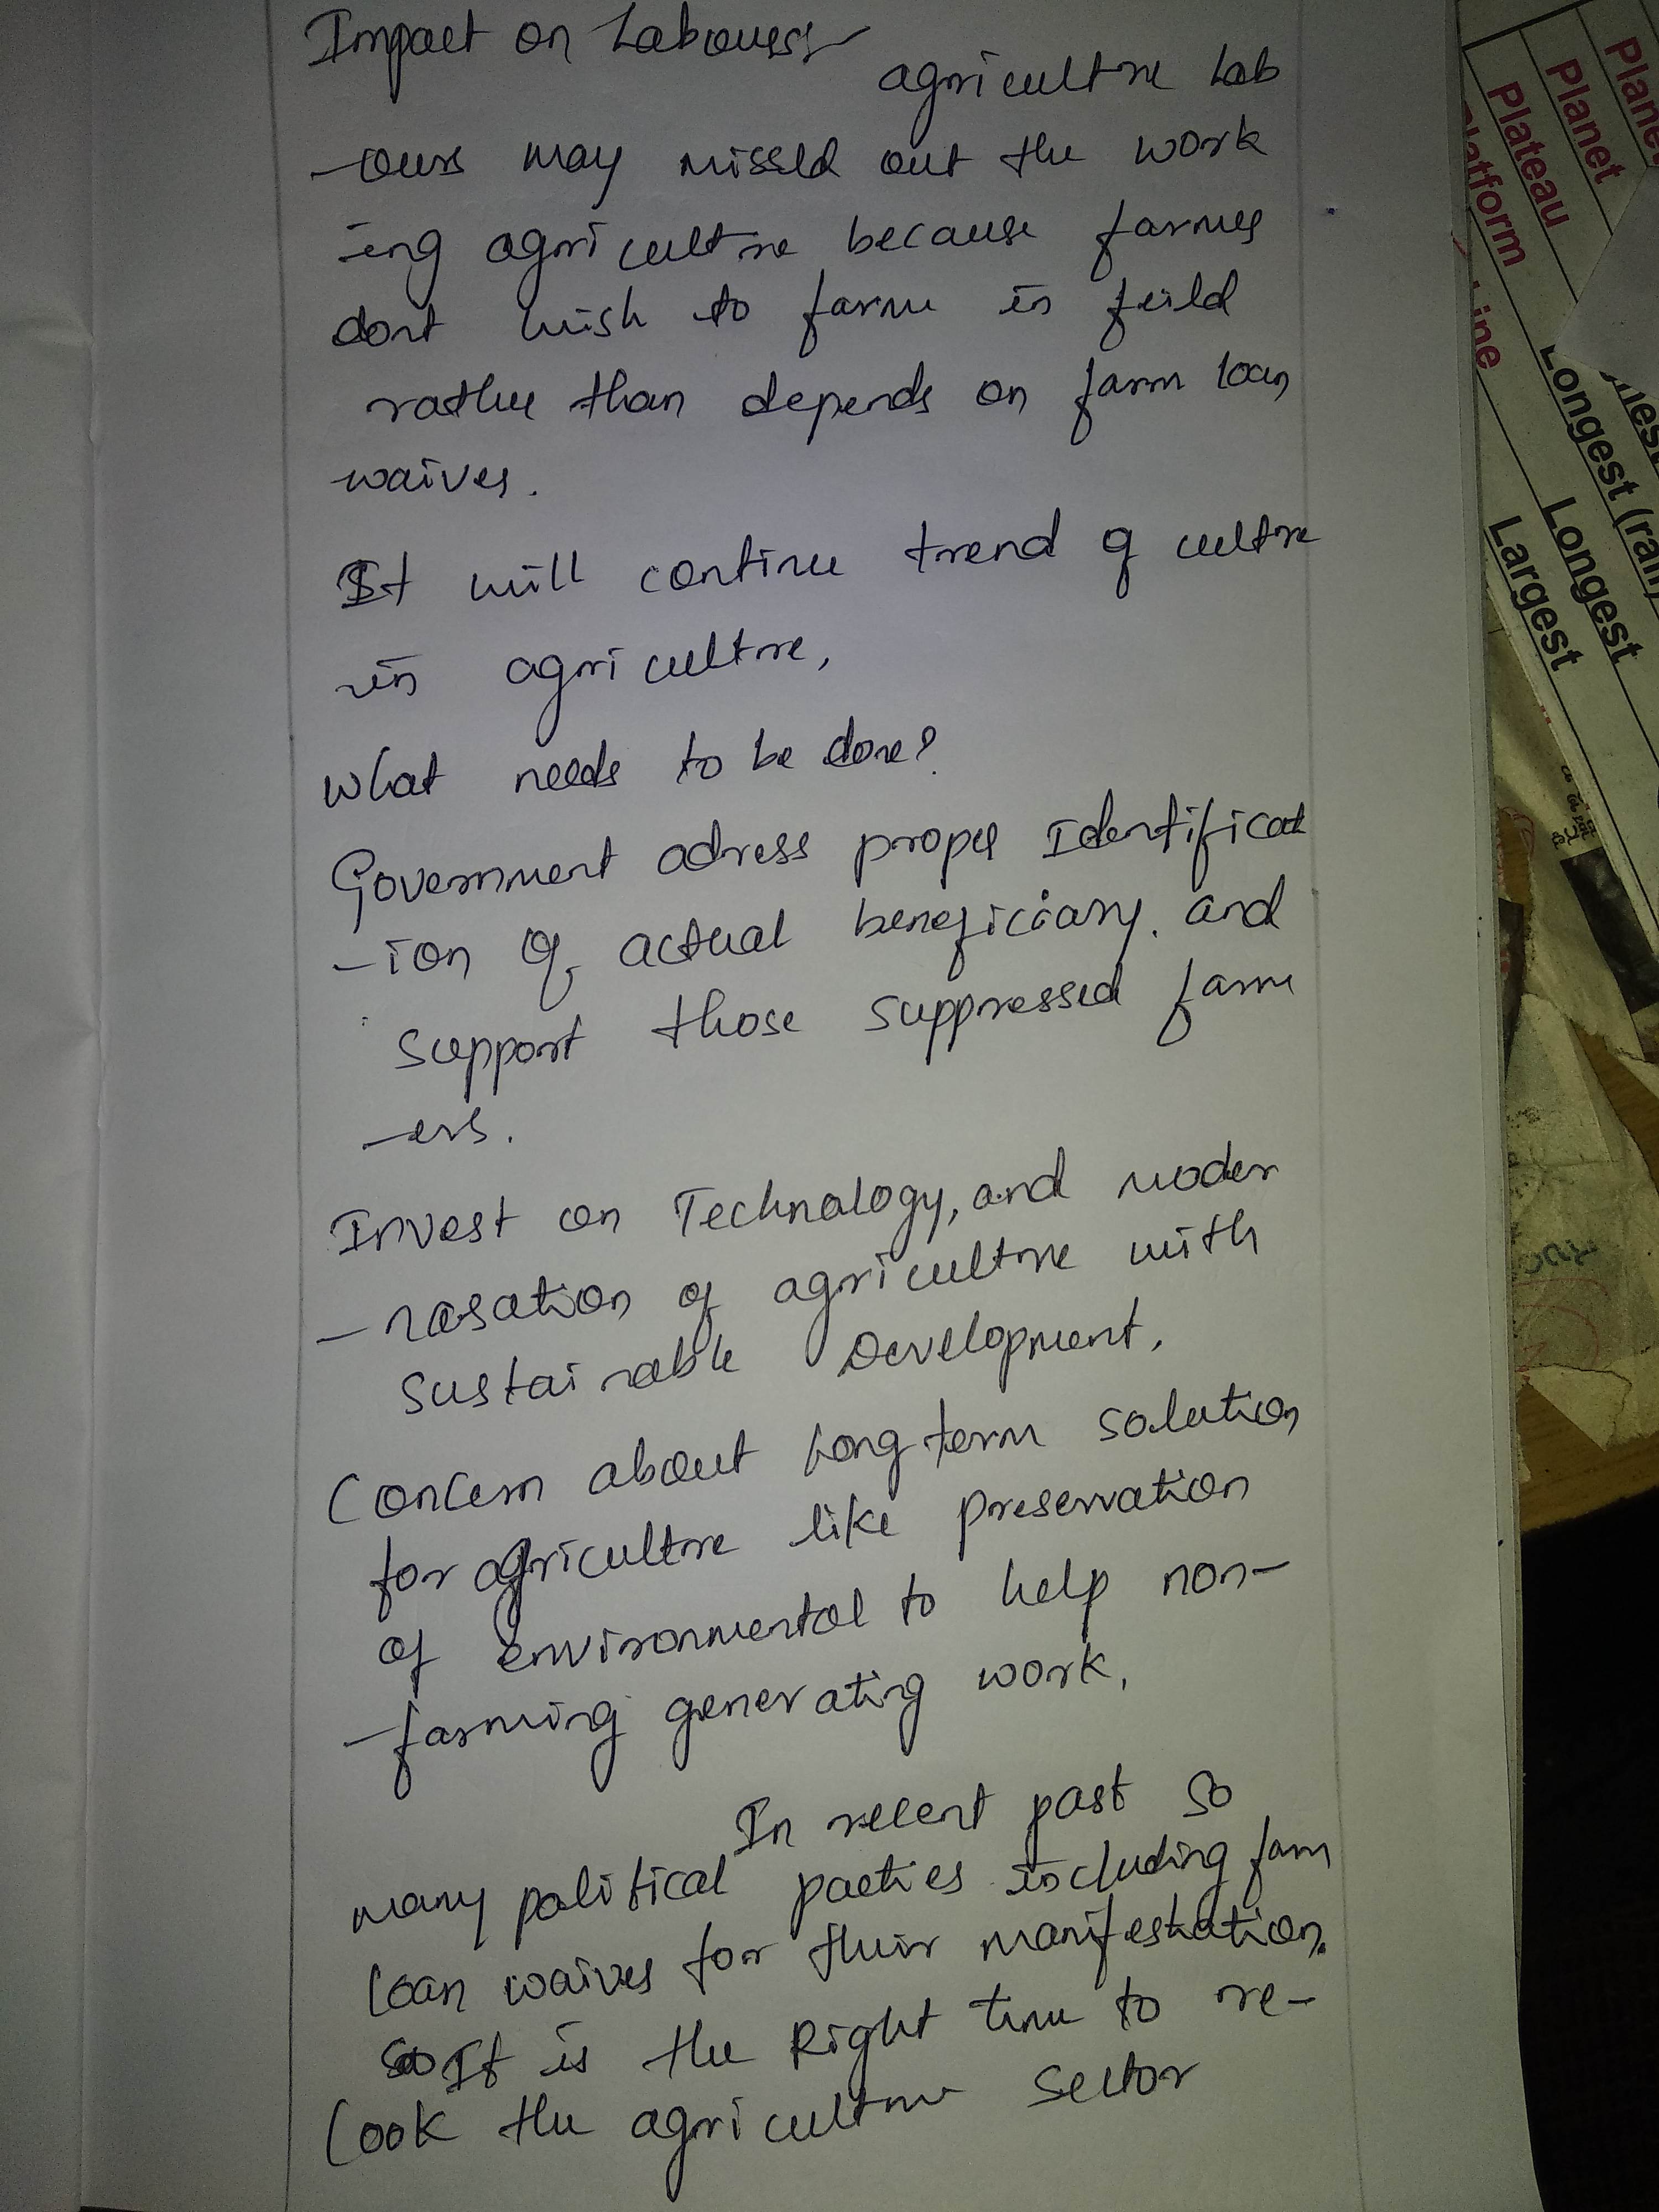 Impact on Labourers
agriculture Lab
-ours may missed out the work
ing agriculture because farmes
dont wish to farm in feild
rather than depends on farm loan
waives.
It will continue trend of culture
in agriculture,
What needs to be done?
Government adress proper Identificat
-ion of actual beneficiary. and
support those suppressed farm
-ers.
Invest on Technology, and moder
-nasation of agriculture with
sustainable Development.
Concern about long term solution
for agriculture like preservation
of environmental to help non-
-farming generating work.
In recent past so
many political parties including farm
loan waives for their manifestation.
so It is the Right time to re-
look the agriculture sector
Plane
Planet
Plateau
Platform
Line
Longest (rail
Longest
Largest